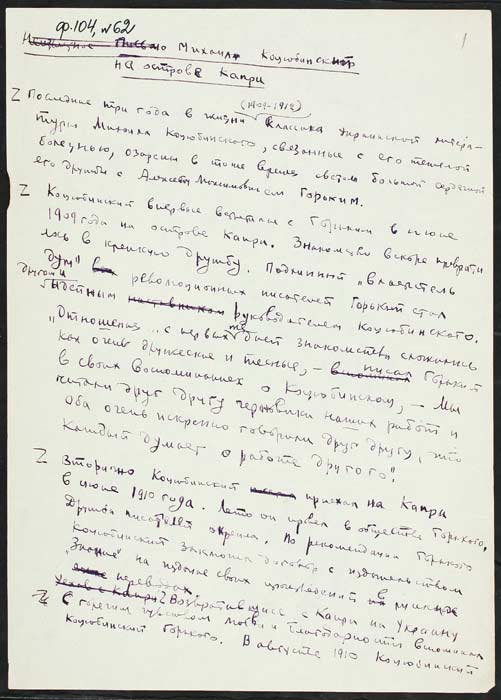 ф.104, №62
1
Неизвестное письмо Михаила Коцюбинского
на острове Капри
(1909-1912)
Последние три года в жизни классика украинской литера-
туры Михаила Коцюбинского, связанные с его тяжелой
болезнью, озарены в тоже время светом большой сердечной
его дружбы с Алексеем Максимовичем Горьким.
Коцюбинский впервые встретился с Горьким в июне
1909 года на острове Капри. Знакомство вскоре преврати
лось в крепкую дружбу. Подлинный "властитель
дум" революционных писателей Горький стал
другом и
идейным наставником руководителем Коцюбинского.
"Отношения... с первых же дней знакомства сложились
как очень дружеские и тесные, - писал Горький
в своих воспоминаниях о Коцюбинском, - Мы
читали друг другу черновики наших работ и
оба очень искренно говорили друг другу, что
каждый думает о работе другого".
Вторично Коцюбинский приехал на Капри
в июне 1910 года. Лето он провел в обществе Горького.
Дружба писателей окрепла. По рекомендации Горького
Коцюбинский заключил договор с издательством
"Знание" на издание своих произведений в русских
переводах.
Уехав с Капри Возвратившись с Капри на Украину
с горячим чувством любви и благодарности вспоминал
Коцюбинский Горького. В августе 1910 Коцюбинский